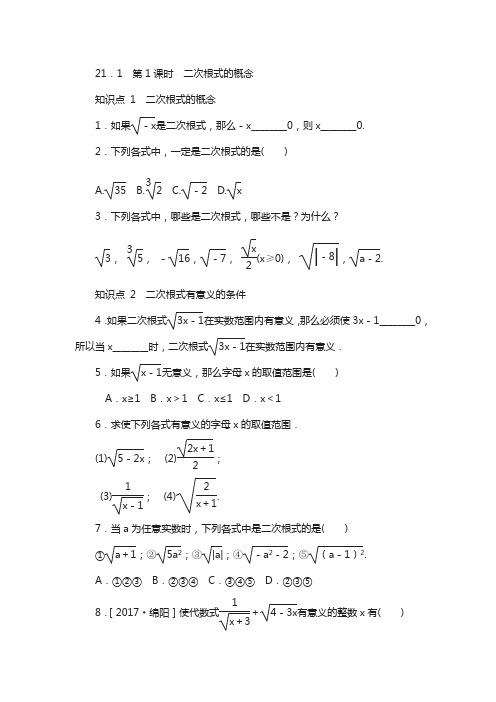 21．1　第1课时　二次根式的概念
知识点 1　二次根式的概念
1．如果√(－x)是二次根式，那么－x________0，则x________0.
2．下列各式中，一定是二次根式的是(　　)
A.√35　B.∛2　C.√(－2)　D.√x
3．下列各式中，哪些是二次根式，哪些不是？为什么？
√3，∛5，－√16，√(－7)，√x/2(x≥0)，√|－8|，√(a－2).
知识点 2　二次根式有意义的条件
4.如果二次根式√(3x－1)在实数范围内有意义，那么必须使3x－1________0，
所以当x________时，二次根式√(3x－1)在实数范围内有意义．
5．如果√(x－1)无意义，那么字母x的取值范围是(　　)
A．x≥1　B．x＞1　C．x≤1　D．x＜1
6．求使下列各式有意义的字母x的取值范围．
(1)√(5－2x)；　(2)√(2x＋1)/2；
(3)1/√(x－1)；　(4)√(2/(x＋1)).
7．当a为任意实数时，下列各式中是二次根式的是(　　)
①√(a＋1)；②√(5a²)；③√|a|；④√(－a²－2)；⑤√((a－1)²).
A．①②③　B．②③④　C．③④⑤　D．②③⑤
8．[2017·绵阳]使代数式1/√(x＋3)＋√(4－3x)有意义的整数x有(　　)